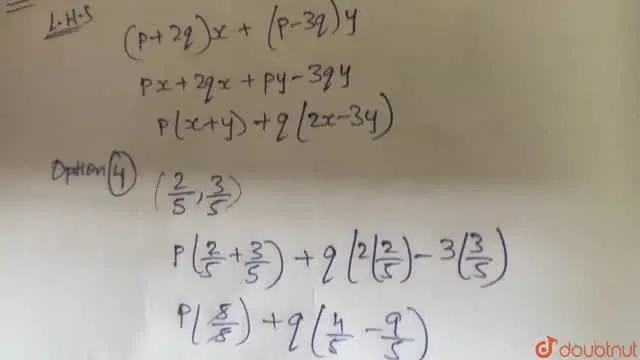 L.H.S
(p+2q)x + (p-3q)y
px+2qx+py-3qy
p(x+y)+q(2x-3y)
Option (4)
(2/5, 3/5)
p(2/5+3/5)+q(2(2/5)-3(3/5)
p(5/5)+q(4/5-9/5)
doubtnut